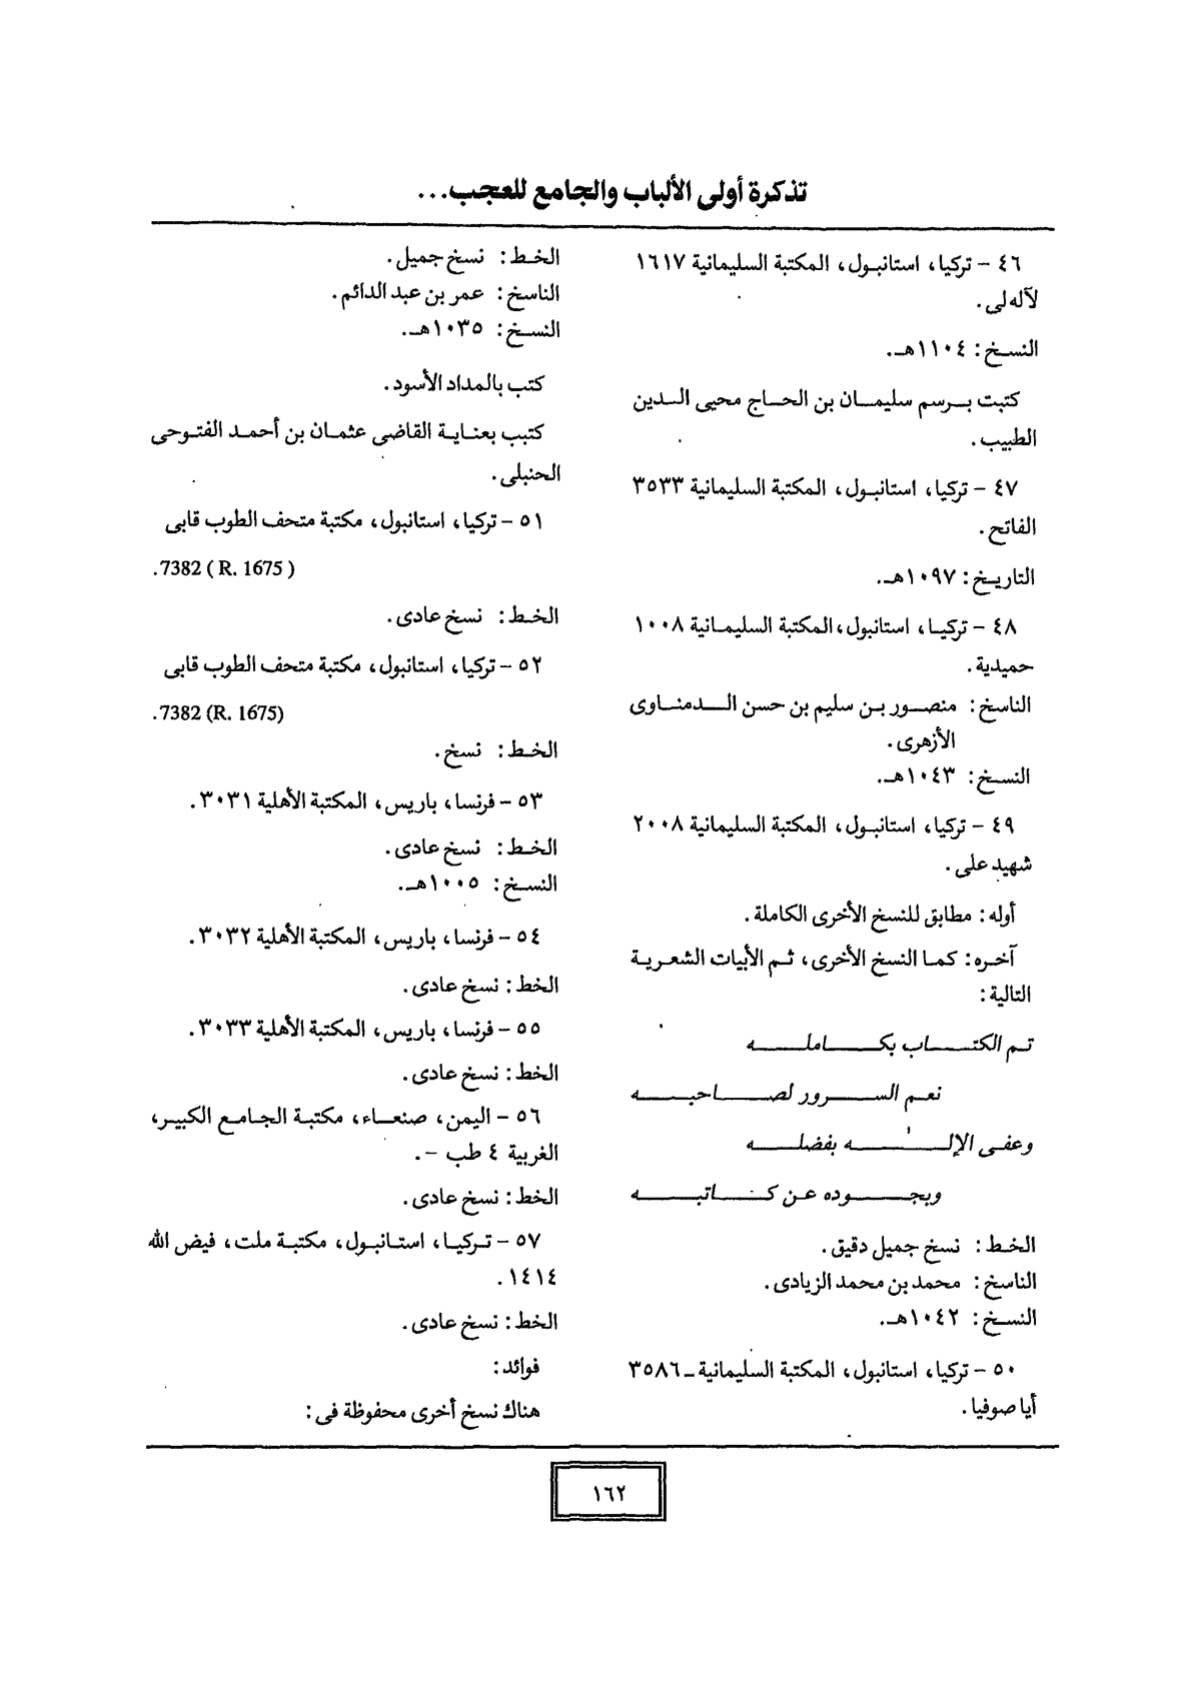 تذكرة أولى الألباب والجامع للعجب...
٤٦ - تركيا، استانبول، المكتبة السليمانية ١٦١٧
لآله لى.
النسخ: ١١٠٤هـ.
كتبت برسم سليمان بن الحاج محيى الدين
الطبيب.
٤٧ - تركيا، استانبول، المكتبة السليمانية ٣٥٣٣
الفاتح.
التاريخ: ١٠٩٧هـ.
٤٨ - تركيا، استانبول، المكتبة السليمانية ١٠٠٨
حميدية.
الناسخ: منصور بن سليم بن حسن الدمناوى
الأزهرى.
النسخ: ١٠٤٣هـ.
٤٩ - تركيا، استانبول، المكتبة السليمانية ٢٠٠٨
شهيد على.
أوله: مطابق للنسخ الأخرى الكاملة.
آخره: كما النسخ الأخرى، ثم الأبيات الشعرية
التالية:
تم الكتاب بكامله
نعم السرور لصاحبه
وعفى الإله بفضله
وبجوده عن كاتبه
الخط: نسخ جميل دقيق.
الناسخ: محمد بن محمد الزيادى.
النسخ: ١٠٤٢هـ.
٥٠ - تركيا، استانبول، المكتبة السليمانية - ٣٥٨٦
أيا صوفيا.
الخط: نسخ جميل.
الناسخ: عمر بن عبد الدائم.
النسخ: ١٠٣٥هـ.
كتب بالمداد الأسود.
كتبب بعناية القاضى عثمان بن أحمد الفتوحى
الحنبلى.
٥١ - تركيا، استانبول، مكتبة متحف الطوب قابى
7382 ( R. 1675 ).
الخط: نسخ عادى.
٥٢ - تركيا، استانبول، مكتبة متحف الطوب قابى
7382 (R. 1675).
الخط: نسخ.
٥٣ - فرنسا، باريس، المكتبة الأهلية ٣٠٣١.
الخط: نسخ عادى.
النسخ: ١٠٠٥هـ.
٥٤ - فرنسا، باريس، المكتبة الأهلية ٣٠٣٢.
الخط: نسخ عادى.
٥٥ - فرنسا، باريس، المكتبة الأهلية ٣٠٣٣.
الخط: نسخ عادى.
٥٦ - اليمن، صنعاء، مكتبة الجامع الكبير،
الغربية ٤ طب -.
الخط: نسخ عادى.
٥٧ - تركيا، استانبول، مكتبة ملت، فيض الله
١٤١٤.
الخط: نسخ عادى.
فوائد:
هناك نسخ أخرى محفوظة فى:
١٦٢